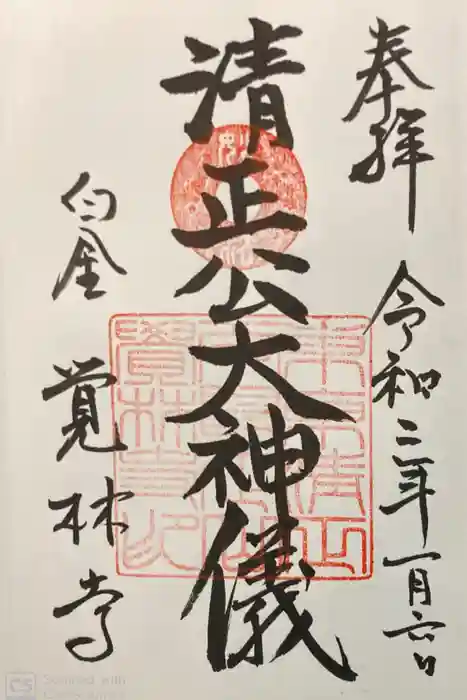 奉拝
令和二年一月六日
清正公大神儀
白金 覚林寺
CS Scanned with
CamScanner